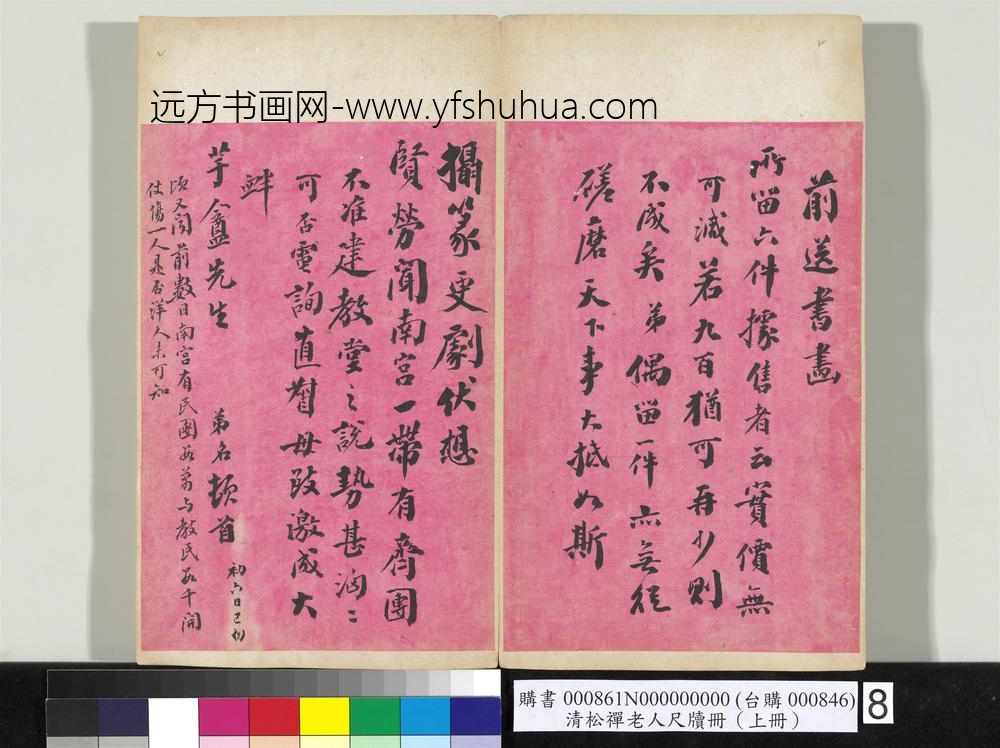 远方书画网-www.yfshuhua.com
前送書畫
所留六件據售者云實價無
可減若九百猶可再少則
不成矣弟偶留一件亦無從
磋磨天下事大抵如斯
攝篆更劇伏想
賢勞聞南宮一帶有齊團
不准建教堂之說勢甚洶〻
可否電詢直督毋致激成大
衅
芋盦先生 弟名頓首 初六日巳初
頃又聞前數日南宮有民團數萬与教民數千開
仗傷一人是否洋人未可知
購書 000861N000000000 (台購 000846)
清松禪老人尺牘冊（上冊）
8